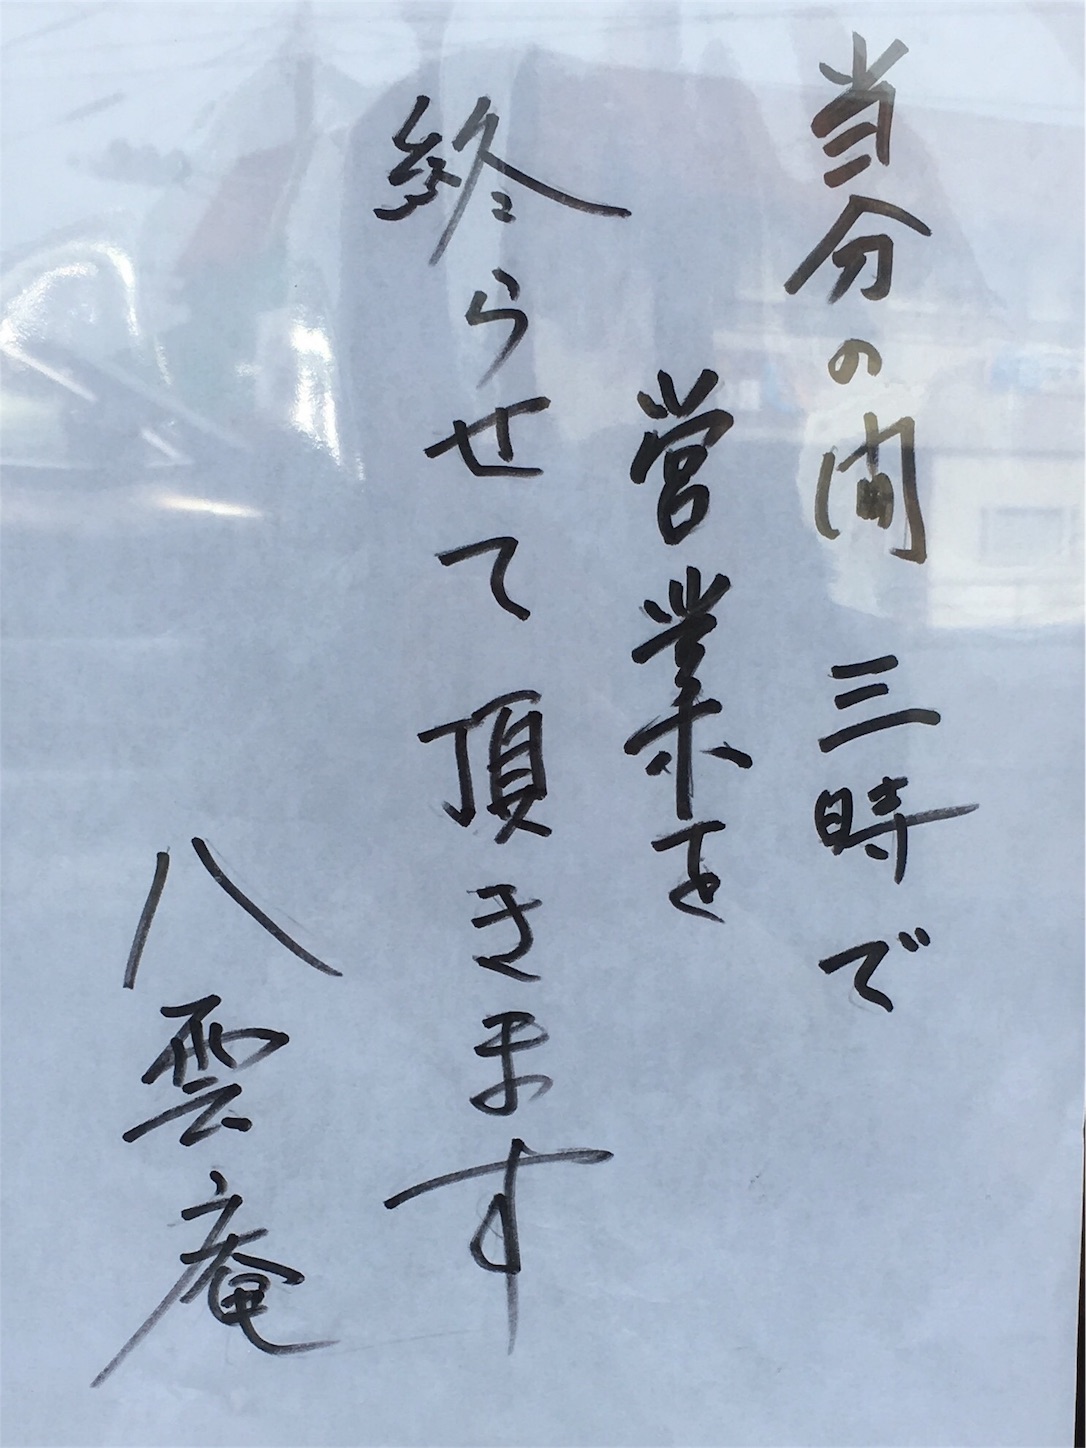 当分の間 三時で
営業を
終らせて頂きます
八雲庵